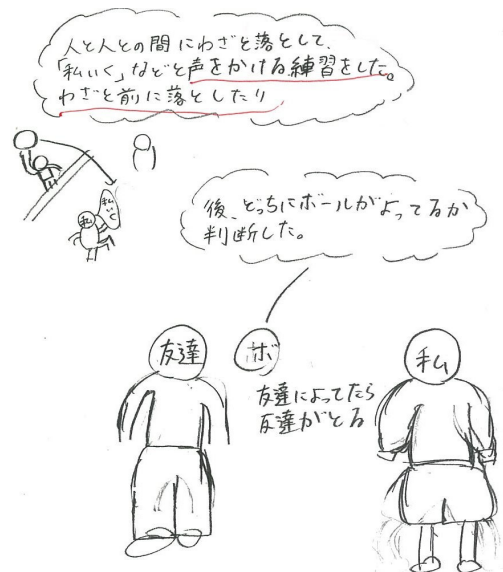 人と人との間にわざと落として、
「私いく」などと声をかける練習をした。
わざと前に落としたり
私いく
私
後、どっちにボールがよってるか
判断した。
友達
ボ
私
友達によってたら
友達がとる